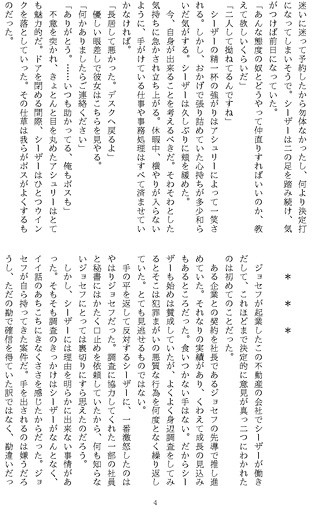 迷いに迷って予約したから勿体なかったし、何より決定打
になってしまいそうで、シーザーは二の足を踏み続け、気
がつけば前日になっていた。
「あんな態度の奴とどうやって仲直りすればいいのか、教
えて欲しいくらいだ」
「二人して拗ねてるんですね」
　シーザーの精一杯の強がりはアシュリーによって一笑さ
れる。しかし、おかげで張り詰めていた心持ちが多少和ら
いだ気がする。シーザーは久しぶりに頬を緩めた。
　今、自身が出来ることを考えるべきだ。そわそわとした
気持ちに急かされ立ち上がる。休暇中、横やりが入らない
ように手がけている仕事や事務処理はすべて済ませてい
かなければ。
「長居して悪かった。デスクへ戻るよ」
　優しい眼差しで彼女はこちらを見やる。
「何かありましたらご連絡ください」
「ありがとう。……いつも助かってる、俺もボスも」
　不意を突かれ、きょとんと目を丸めたアシュリーはとて
も魅力的だ。ドアを閉める間際、シーザーはひとつウイン
クを落としていった。その仕草は我らがボスがよくするも
のだった。
＊　＊　＊
　ジョセフが起業したこの不動産の会社でシーザーが働き
だして、これほどまで決定的に意見が真っ二つにわかれた
のは初めてのことだった。
　ある企業との契約を社長であるジョセフの先導で推し進
めていた。それなりの実績があり、くわえて成長の見込み
もあるところだった。食いつかない手はない。だからシー
ザーも始めは賛成していたが、よくよく身辺調査をしてみ
るとそこは犯罪まがいの悪質な行為を何度となく繰り返し
ていた。とても見過せるものではない。
　手の平を返して反対するシーザーに、一番激怒したのは
やはりジョセフだった。調査に協力してくれた一部の社員
と秘書にはかたく口止めを依頼していたから、何も知らな
いジョセフにとっては裏切りにすら思えたのだろう。
　しかし、シーザーには理由を明らかに出来ない事情があ
った。そもそも調査のきっかけはシーザーがなんとなく、
イイ話のあちこちにきなくささを感じたからだった。ジョ
セフが自ら持ってきた案件だ。手を出されるのは嫌うだろ
うし、ただの勘で確信を得ていた訳ではなく、勘違いだっ
4